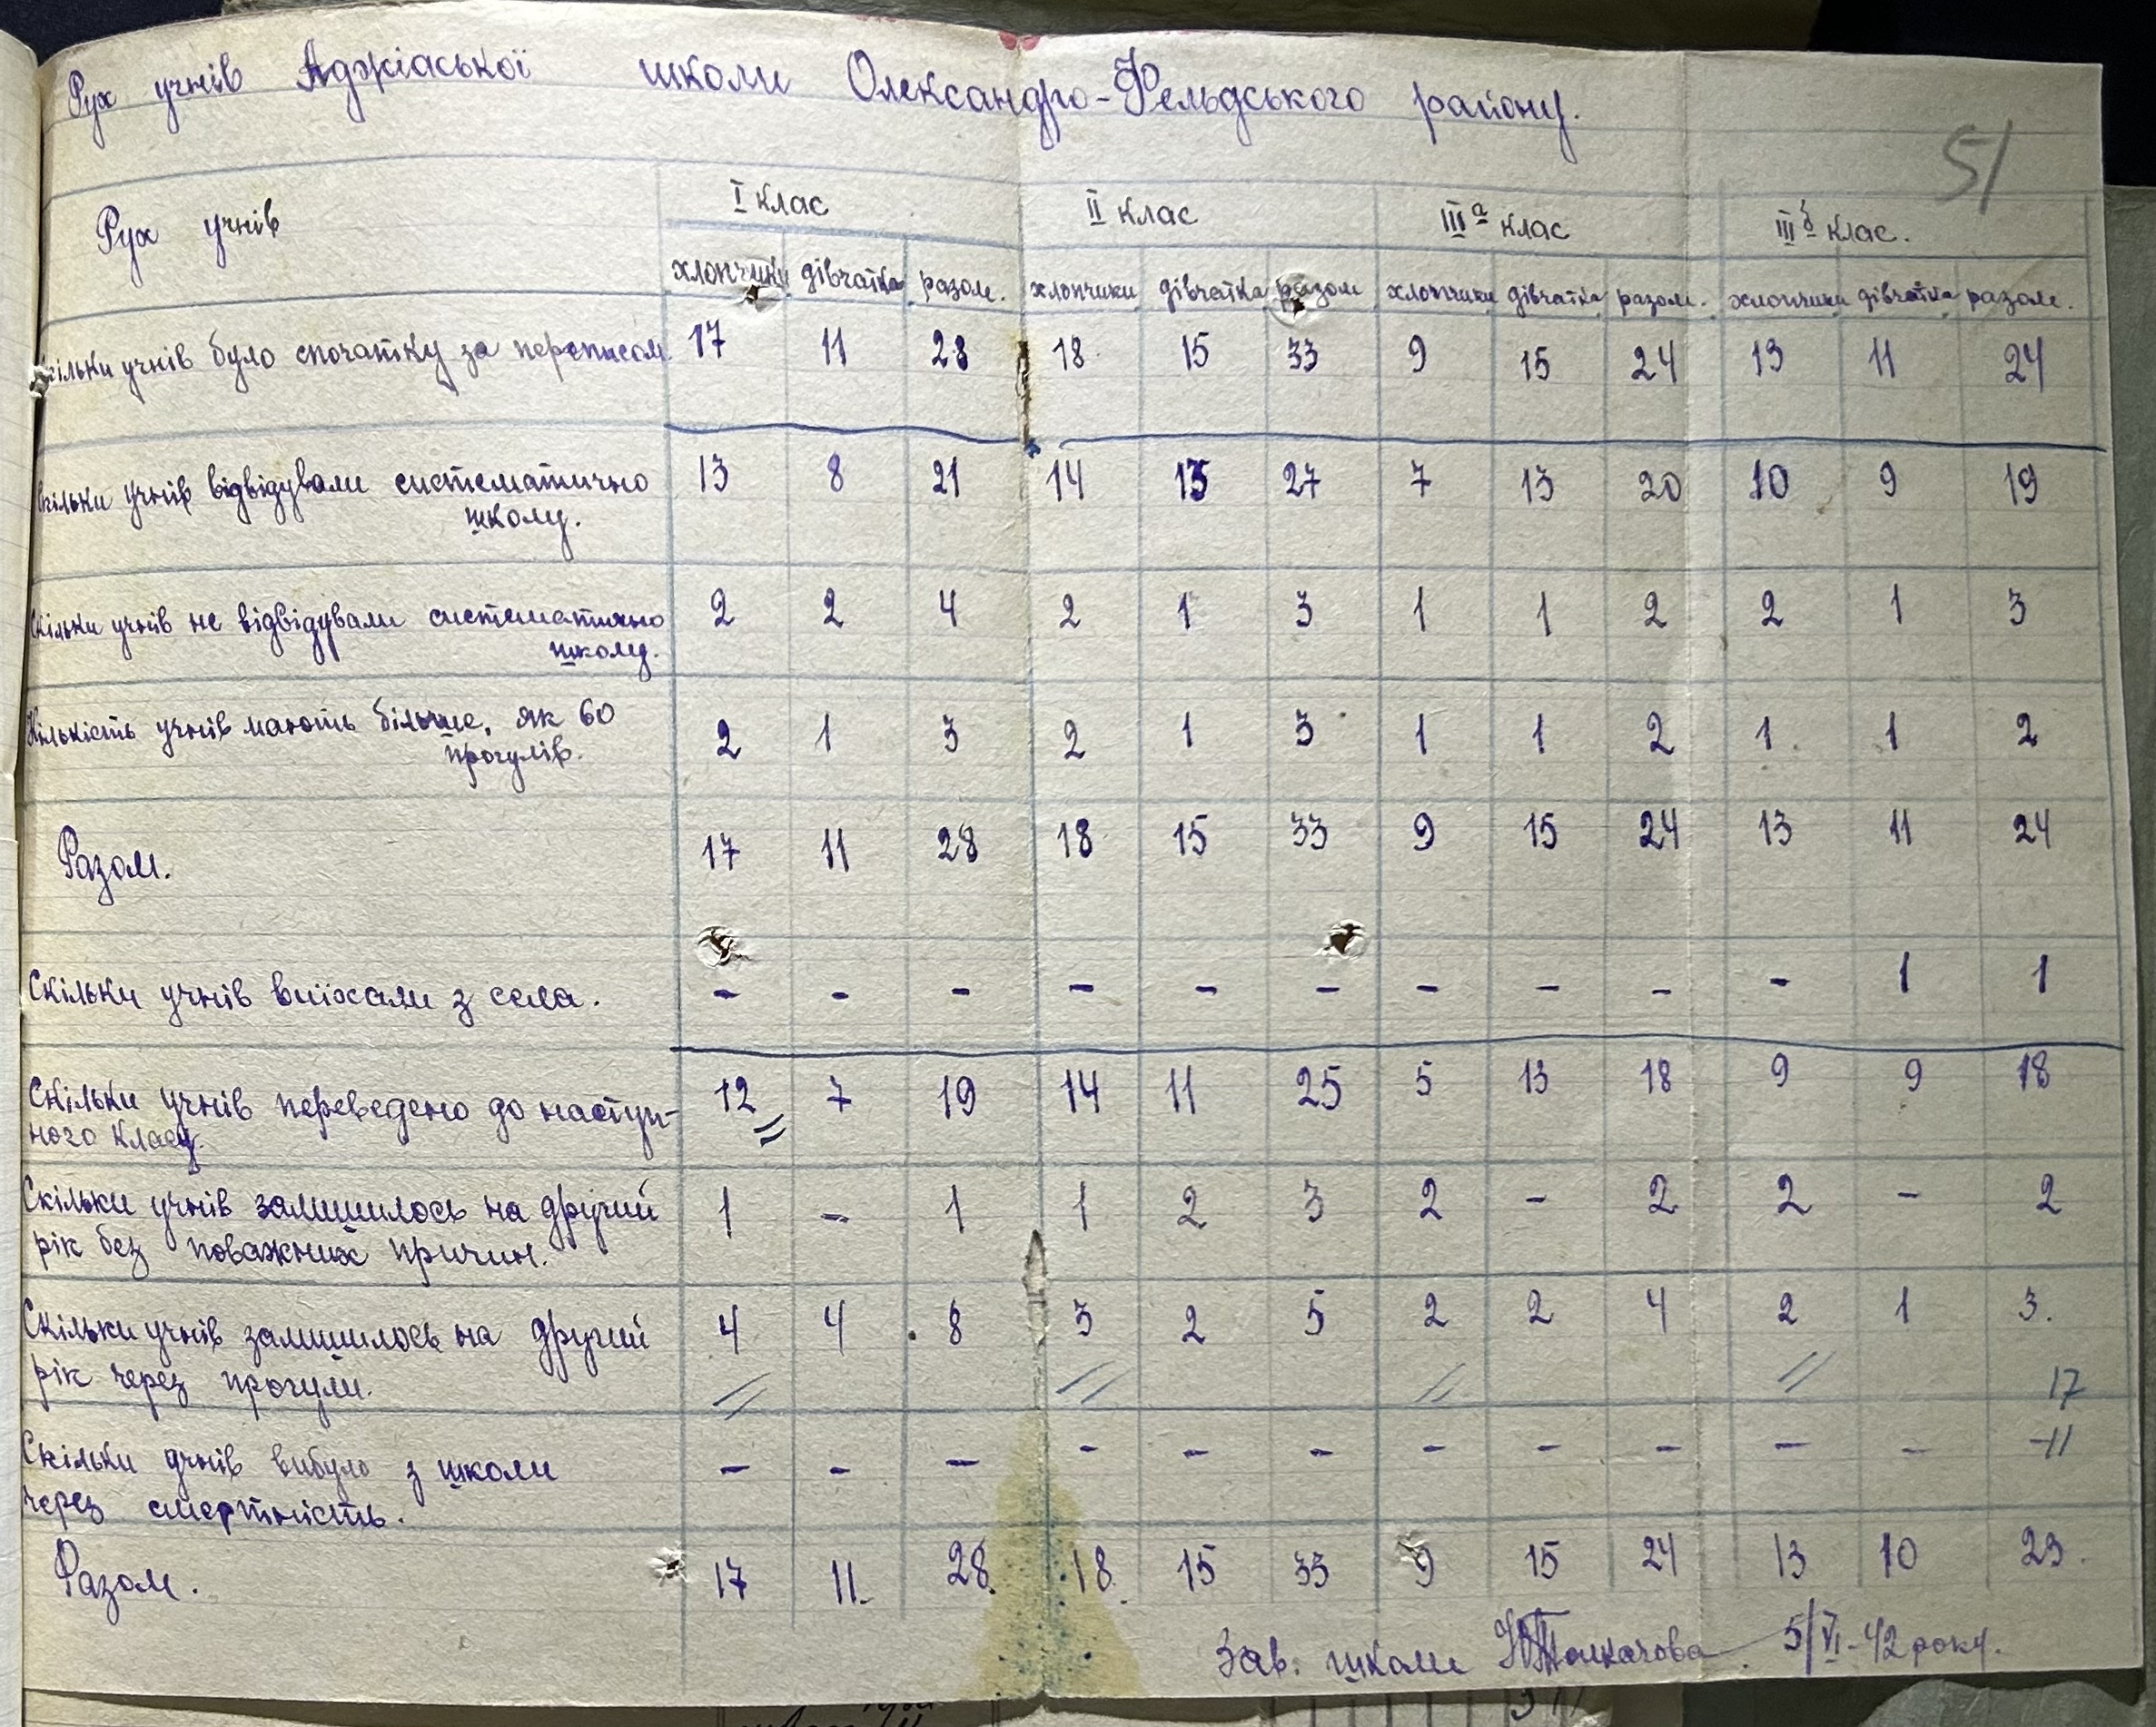 Рух учнів Аджіаської школи Олександро-Фельдського району.
51
Рух учнів
I клас II клас IIIа клас IIIб клас.
хлопчики дівчатка разом. хлопчики дівчатка разом хлопчики дівчатка разом. хлопчики дівчатка разом.
Скільки учнів було спочатку за переписом 17 11 28 18 15 33 9 15 24 13 11 24
Скільки учнів відвідували систематично 13 8 21 14 13 27 7 13 20 10 9 19
школу.
Скільки учнів не відвідували систематично 2 2 4 2 1 3 1 1 2 2 1 3
школу.
Кількість учнів мають більше, як 60 2 1 3 2 1 3 1 1 2 1 1 2
прогулів.
Разом. 17 11 28 18 15 33 9 15 24 13 11 24
Скільки учнів виїхали з села. - - - - - - - - - - 1 1
Скільки учнів переведено до наступ- 12 7 19 14 11 25 5 13 18 9 9 18
ного класу.
Скільки учнів залишилось на другий 1 - 1 1 2 3 2 - 2 2 - 2
рік без поважних причин.
Скільки учнів залишилось на другий 4 4 8 3 2 5 2 2 4 2 1 3.
рік через прогули.
17
Скільки учнів вибуло з школи - - - - - - - - - - - -11
через смертність.
Разом. 17 11. 28. 18. 15 33 9 15 24 13 10 23.
Зав. школи Толкачова 5/VI-42 року.